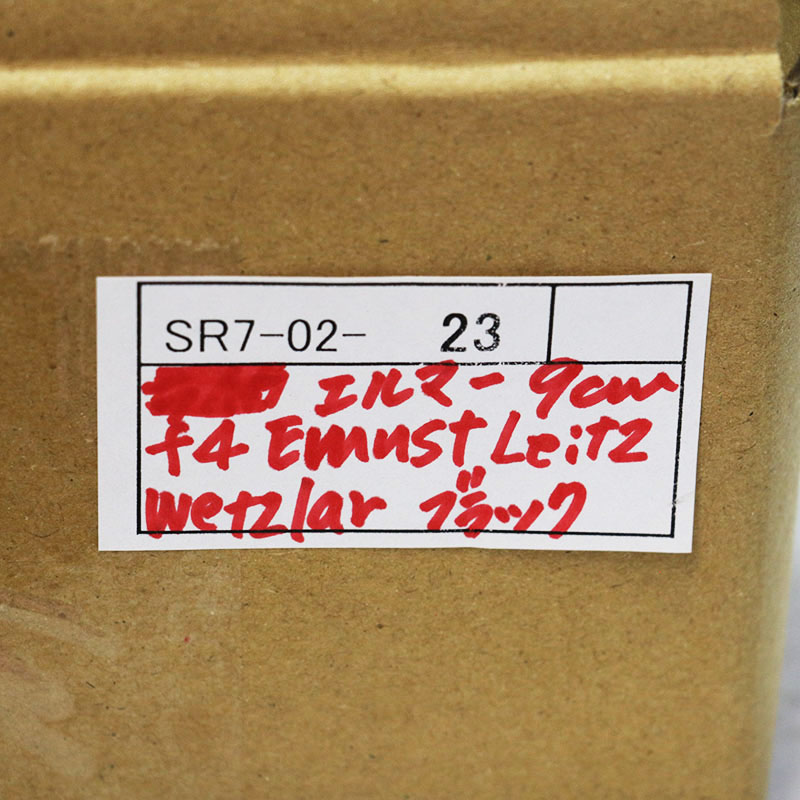 SR7-02- 23
エルマー 9cm
f4 Emust Leitz
wetzlar ブラック